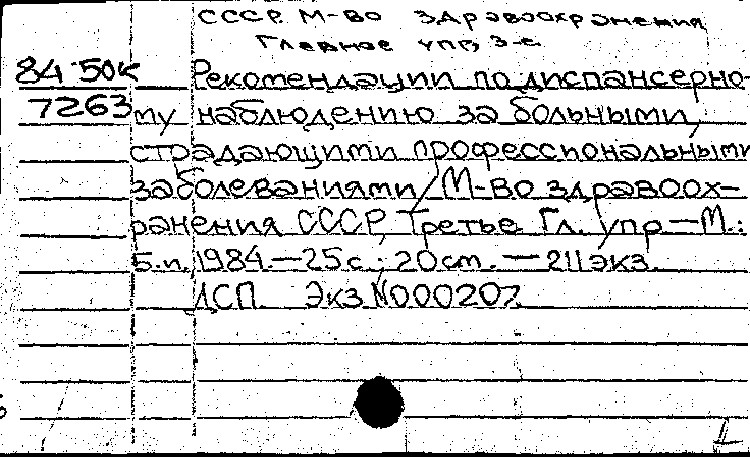 СССР М-во здравоохранения
Главное упр, 3-е.
84-50к Рекомендации по диспансерно-
7263 му наблюдению за больными,
страдающими профессиональными
заболеваниями/М-во здравоох-
ранения СССР, Третье Гл. упр—М.:
Б.и, 1984.—25с.; 20см.—211экз.
ДСП. Экз N000207.